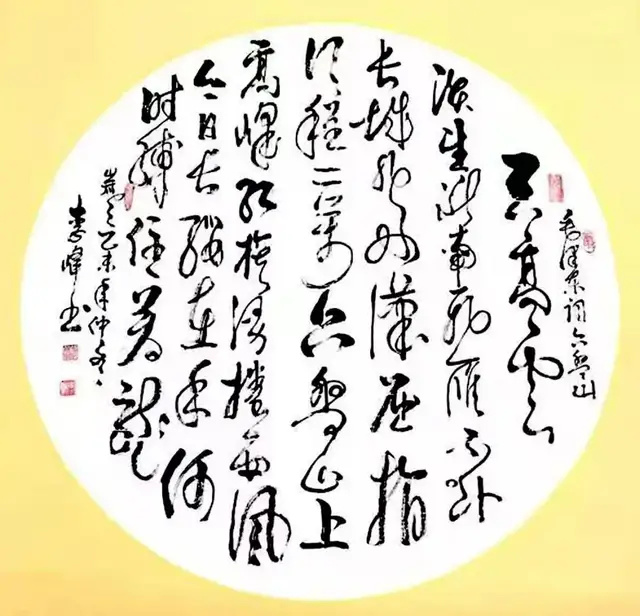 毛泽东词六盘山
天高云
淡望断南飞雁不到
长城非好汉屈指
行程二万六盘山上
高峰红旗漫卷西风
今日长缨在手何
时缚住苍龙
岁之乙未年仲冬
李峰书